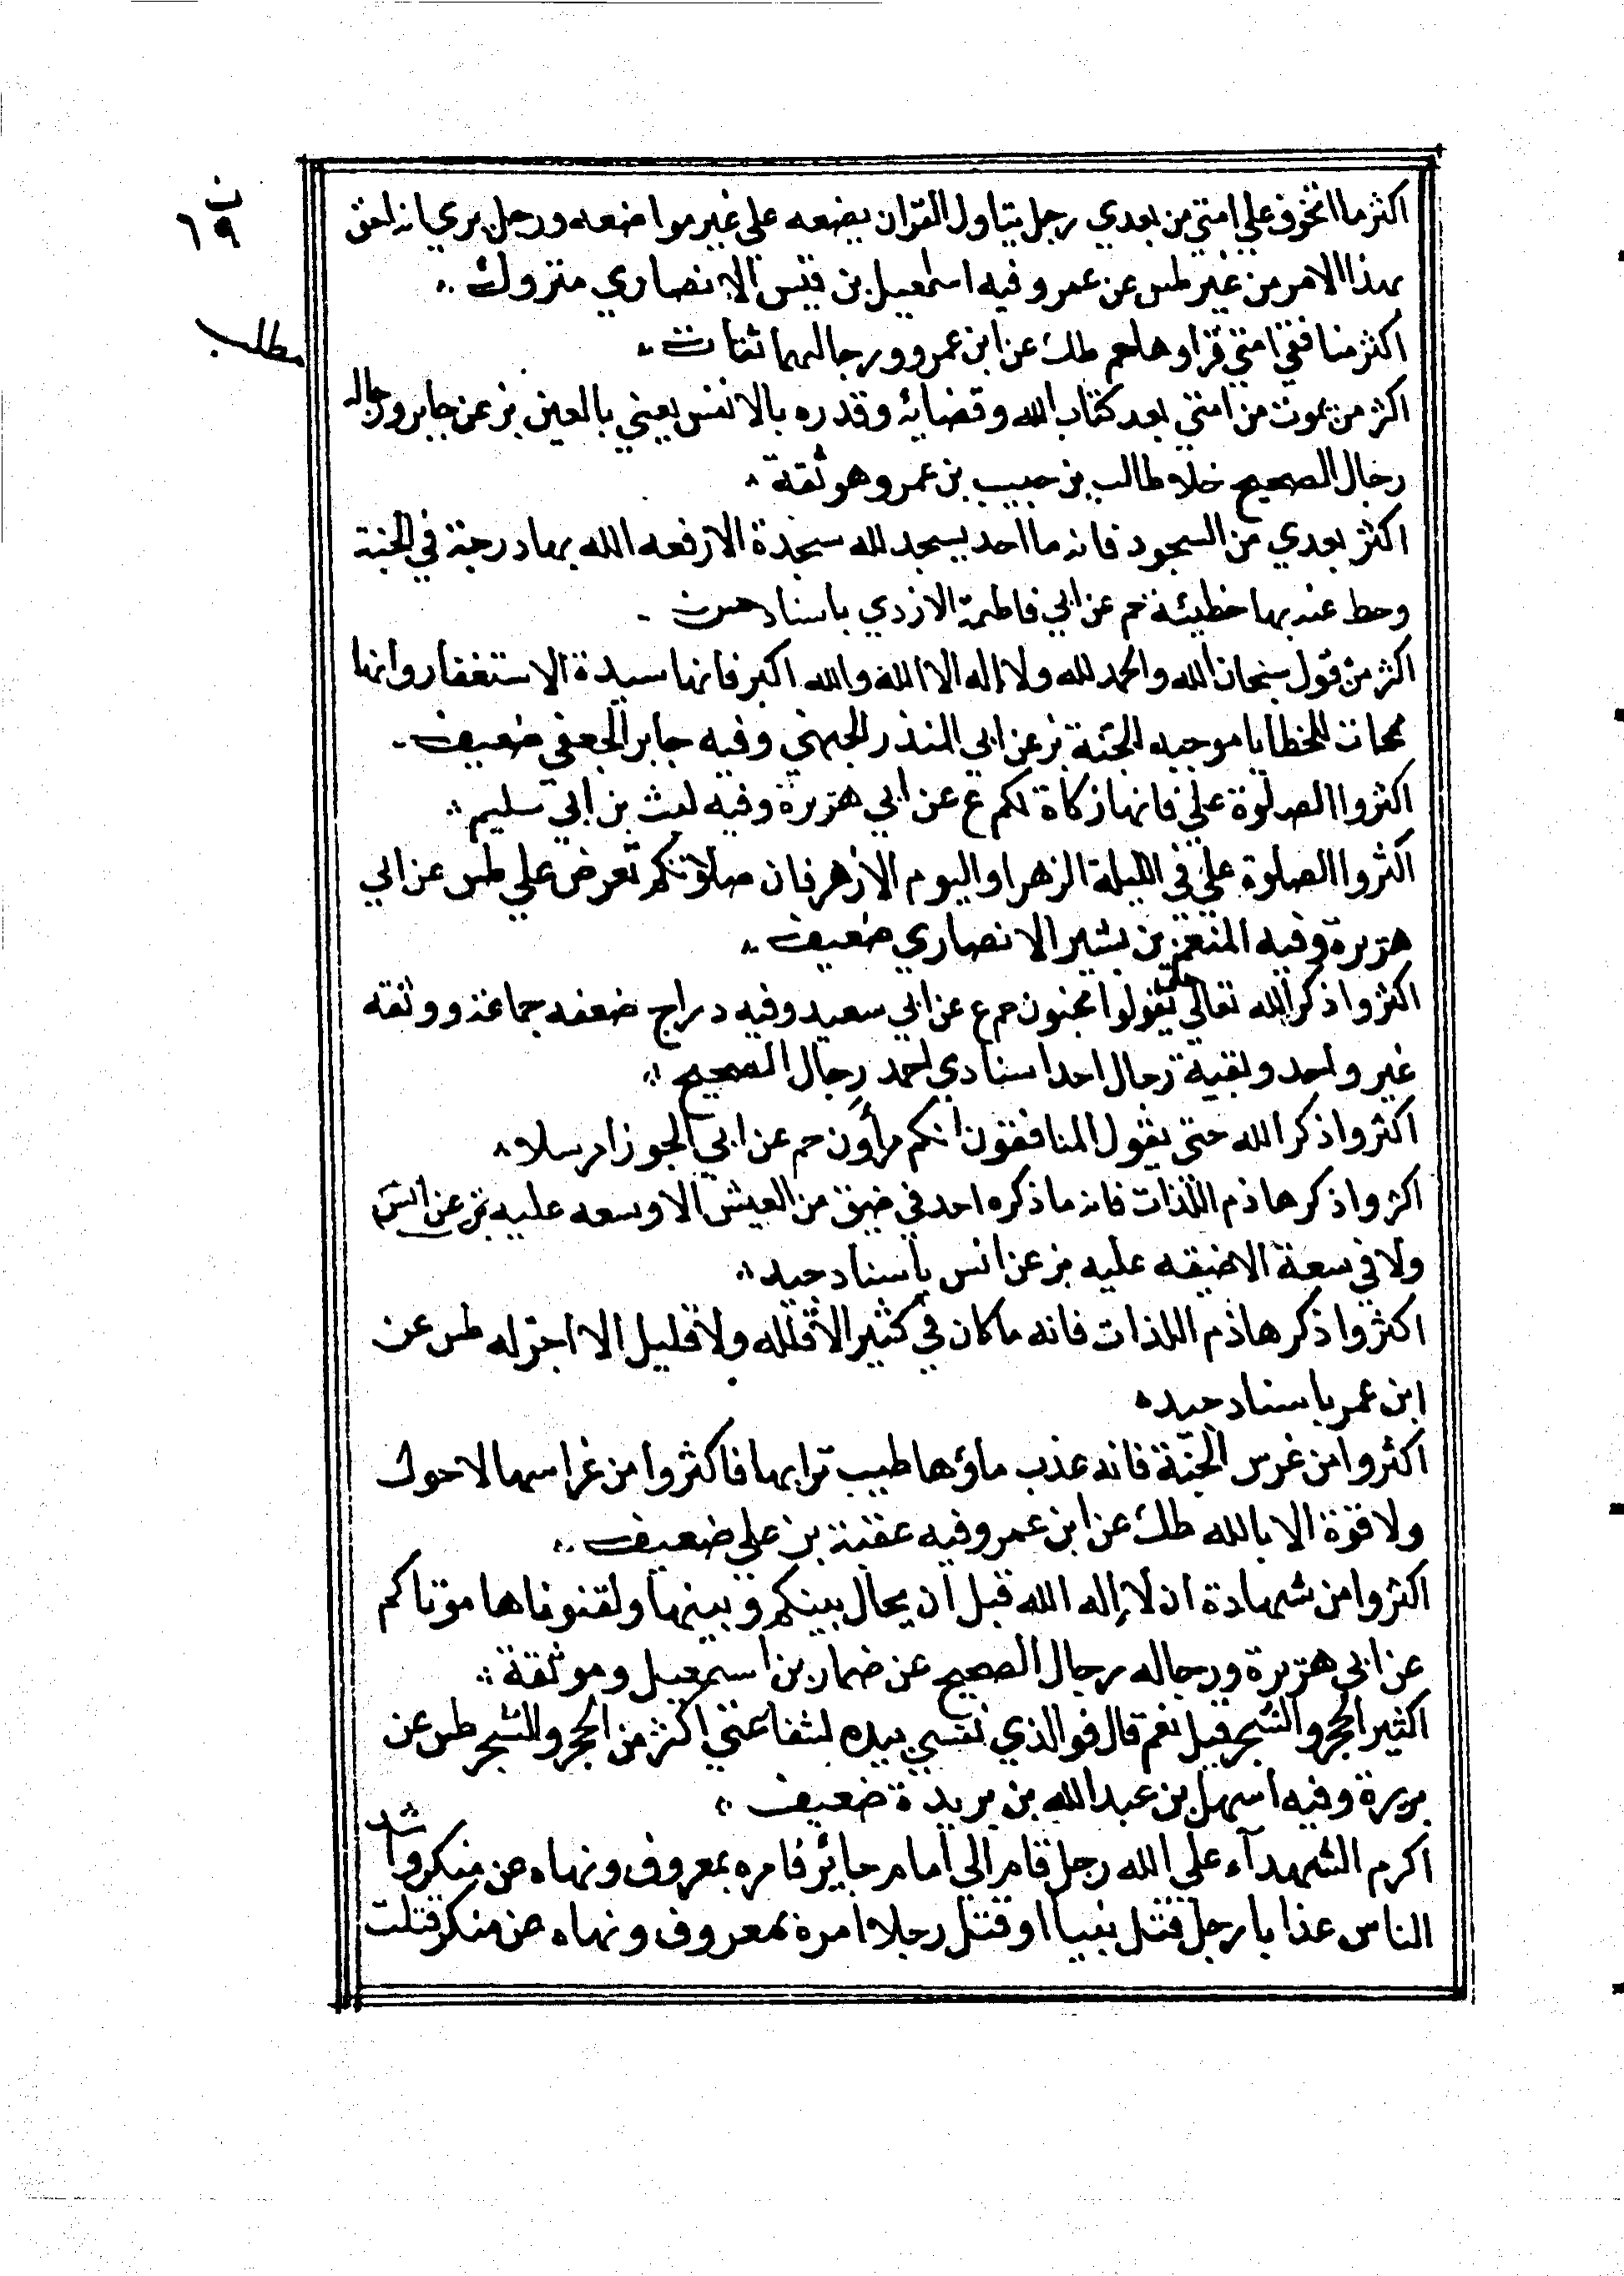 ن
٦٩
مطلب
اكثر ما اتخوف علي امتي من بعدي رجل يتاول القران يضعه على غير مواضعه ورجل يري انه احق
بهذا الامر من غيره طس عن عمر وفيه اسمعيل بن قيس الانصاري متروك
اكثر منافقي امتي قراوها حم طك عن ابن عمرو ورجالهما ثقات
اكثر من يموت من امتي بعد كتاب الله وقضايه وقدره بالانفس يعني بالعين بز عن جابر ورجاله
رجال الصحيح خلا طالب بن حبيب بن عمرو وهو ثقة
اكثر بعدي من السجود فانه ما احد يسجد لله سجدة الا رفعه الله بها درجة في الجنة
وحط عنه بها خطيئة حم عن ابي فاطمة الازدي باسناد حسن
اكثر من قول سبحان الله والحمد لله ولا اله الا الله والله اكبر فانها سيدة الاستغفار وانها
ممحات للخطايا موجبه الجنة بز عن ابي المنذر الجهني وفيه جابر الجعفي ضعيف
اكثروا الصلوة علي فانها زكاة لكم ع عن ابي هريرة وفيه ليث بن ابي سليم
اكثروا الصلوة علي في الليلة الزهرا واليوم الازهر فان صلاتكم تعرض علي طس عن ابي
هريرة وفيه المنعم بن بشير الانصاري ضعيف
اكثروا ذكر الله تعالي حتى يقولوا مجنون حم ع عن ابي سعيد وفيه دراج ضعفه جماعة ووثقه
غير واحد وبقية رجال احد اسنادي احمد رجال الصحيح
اكثروا ذكر الله حتى يقول المنافقون انكم مرأون حم عن ابي الجوزا مرسلا
اكثروا ذكر هاذم اللذات فانه ما ذكره احد في ضيق من العيش الا وسعه عليه بز عن انس
ولا في سعة الا ضيقه عليه بز عن انس باسناد جيد
اكثروا ذكر هاذم اللذات فانه ما كان في كثير الا قلله ولا قليل الا اجزله طس عن
ابن عمر باسناد جيد
اكثروا من غرس الجنة فانه عذب ماؤها طيب ترابها فاكثروا من غراسها لا حول
ولا قوة الا بالله طك عن ابن عمر وفيه عقبة بن علي ضعيف
اكثروا من شهادة ان لا اله الله قبل ان يحال بينكم وبينها ولقنوناها موتاكم
عن ابي هريرة ورجاله رجال الصحيح عن ضمار بن اسمعيل وهو ثقة
اكثير الحجر والشجر قيل نعم قال فوالذي نفسي بيده لشفاعتي اكثر من الحجر والشجر طس عن
بريرة وفيه اسهل بن عبدالله بن بريدة ضعيف
اكرم الشهدآء على الله رجل قام الي امام جائر فامره بمعروف ونهاه عن منكر واشد
الناس عذابا رجل قتل نبيا او قتل رجلا امره بمعروف ونهاه عن منكر قتلت